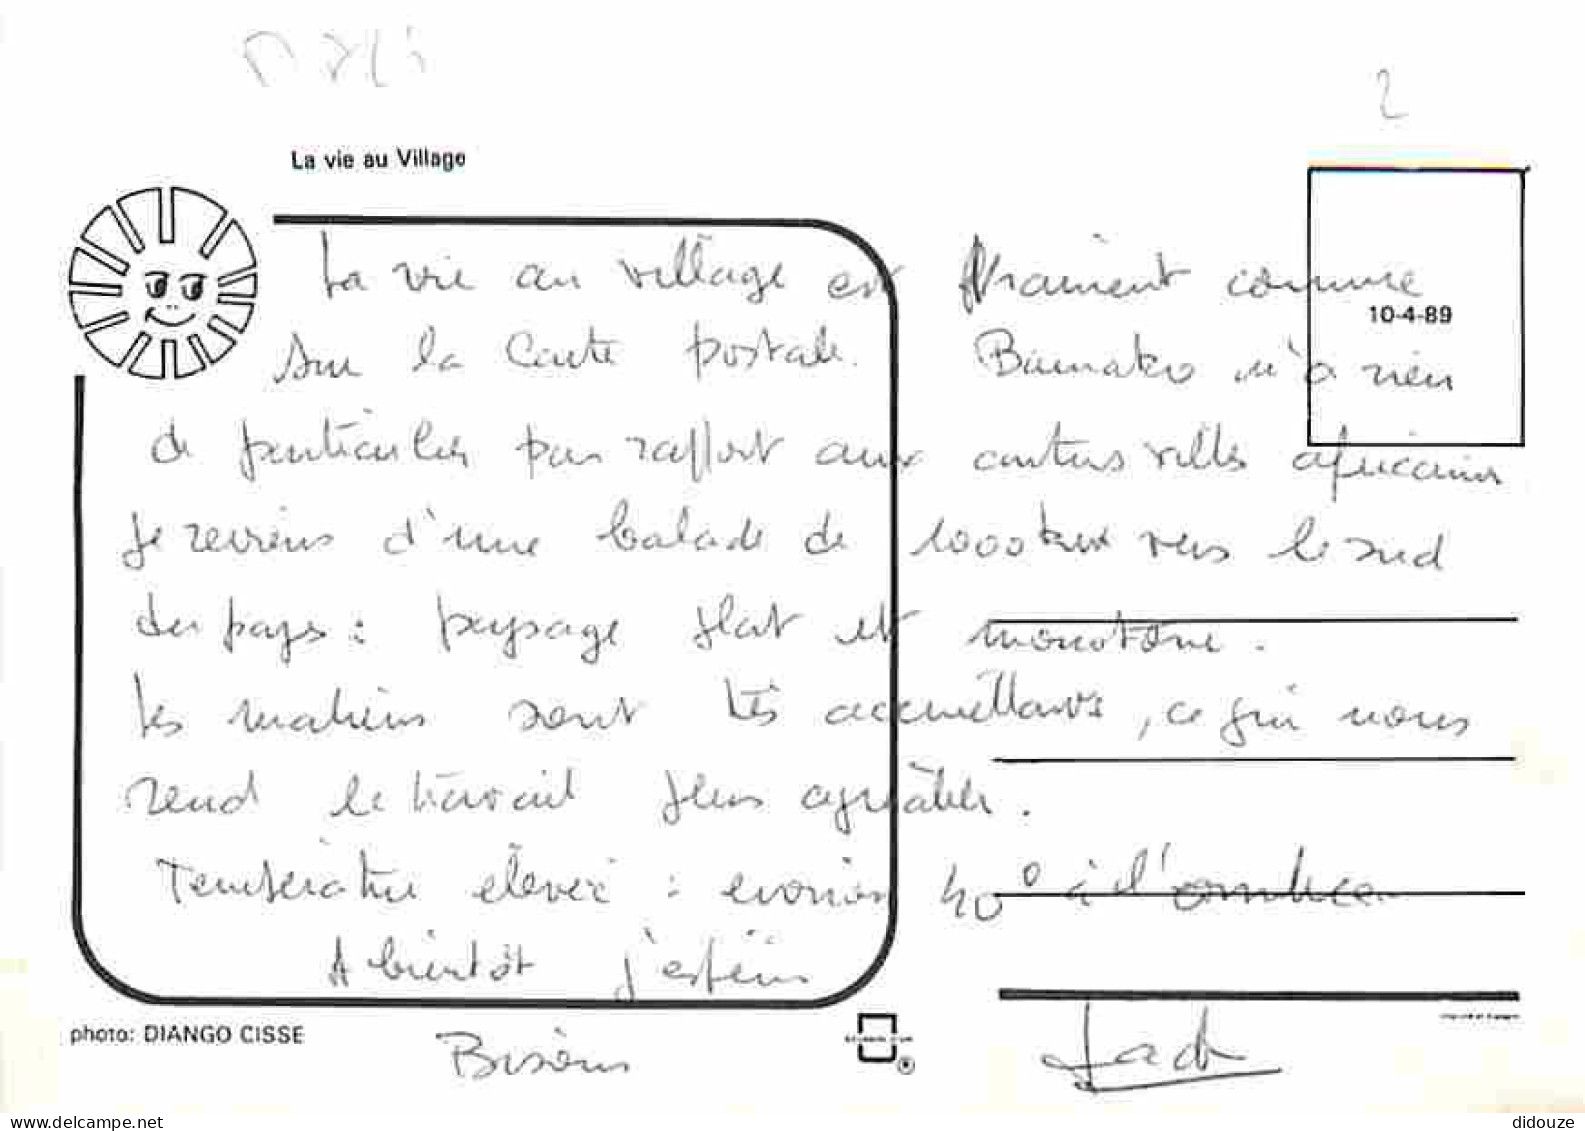 Mali
2
La vie au Village
La vie au village est vraiment comme
10-4-89
sur la Carte postale. Bamako n'a rien
de particulier par rapport aux autres villes africaines
je reviens d'une balade de 1000 km vers le sud
du pays : paysage plat et monotone.
les maliens sont très accueillants, ce qui nous
rend le travail plus agréable.
Température élevée : environ 40° à l'ombre
A bientôt j'espère
photo: DIANGO CISSE
Bisous
delcampe.net
didouze